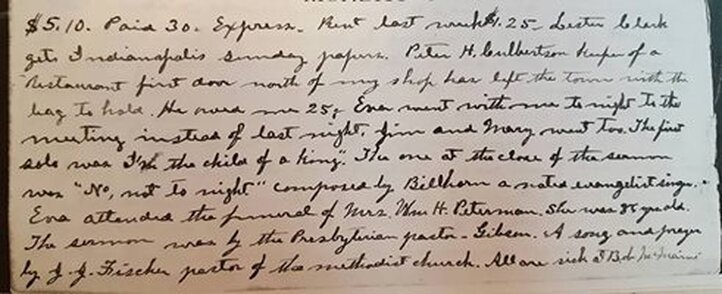 $5.10. Paid 30. Express. Rent last week $1.25- Lester Clark
gets Indianapolis sunday papers. Peter H. Culbertson keeper of a
restaurant first door north of my shop has left the town with the
bag to hold. He owed me 25¢ Eva went with me to night to the
meeting instead of last night. Jim and Mary went too. The first
solo was "I'm the child of a king". The one at the close of the sermon
was "No, not to night" composed by Billhorn a noted evangelist singer.
Eva attended the funeral of Mrs. Wm H. Peterman. She was 86 yrs old.
The sermon was by the Presbyterian pastor - Gibson. A song and prayer
by J. J. Fischer pastor of the methodist church. All are sick at Bob